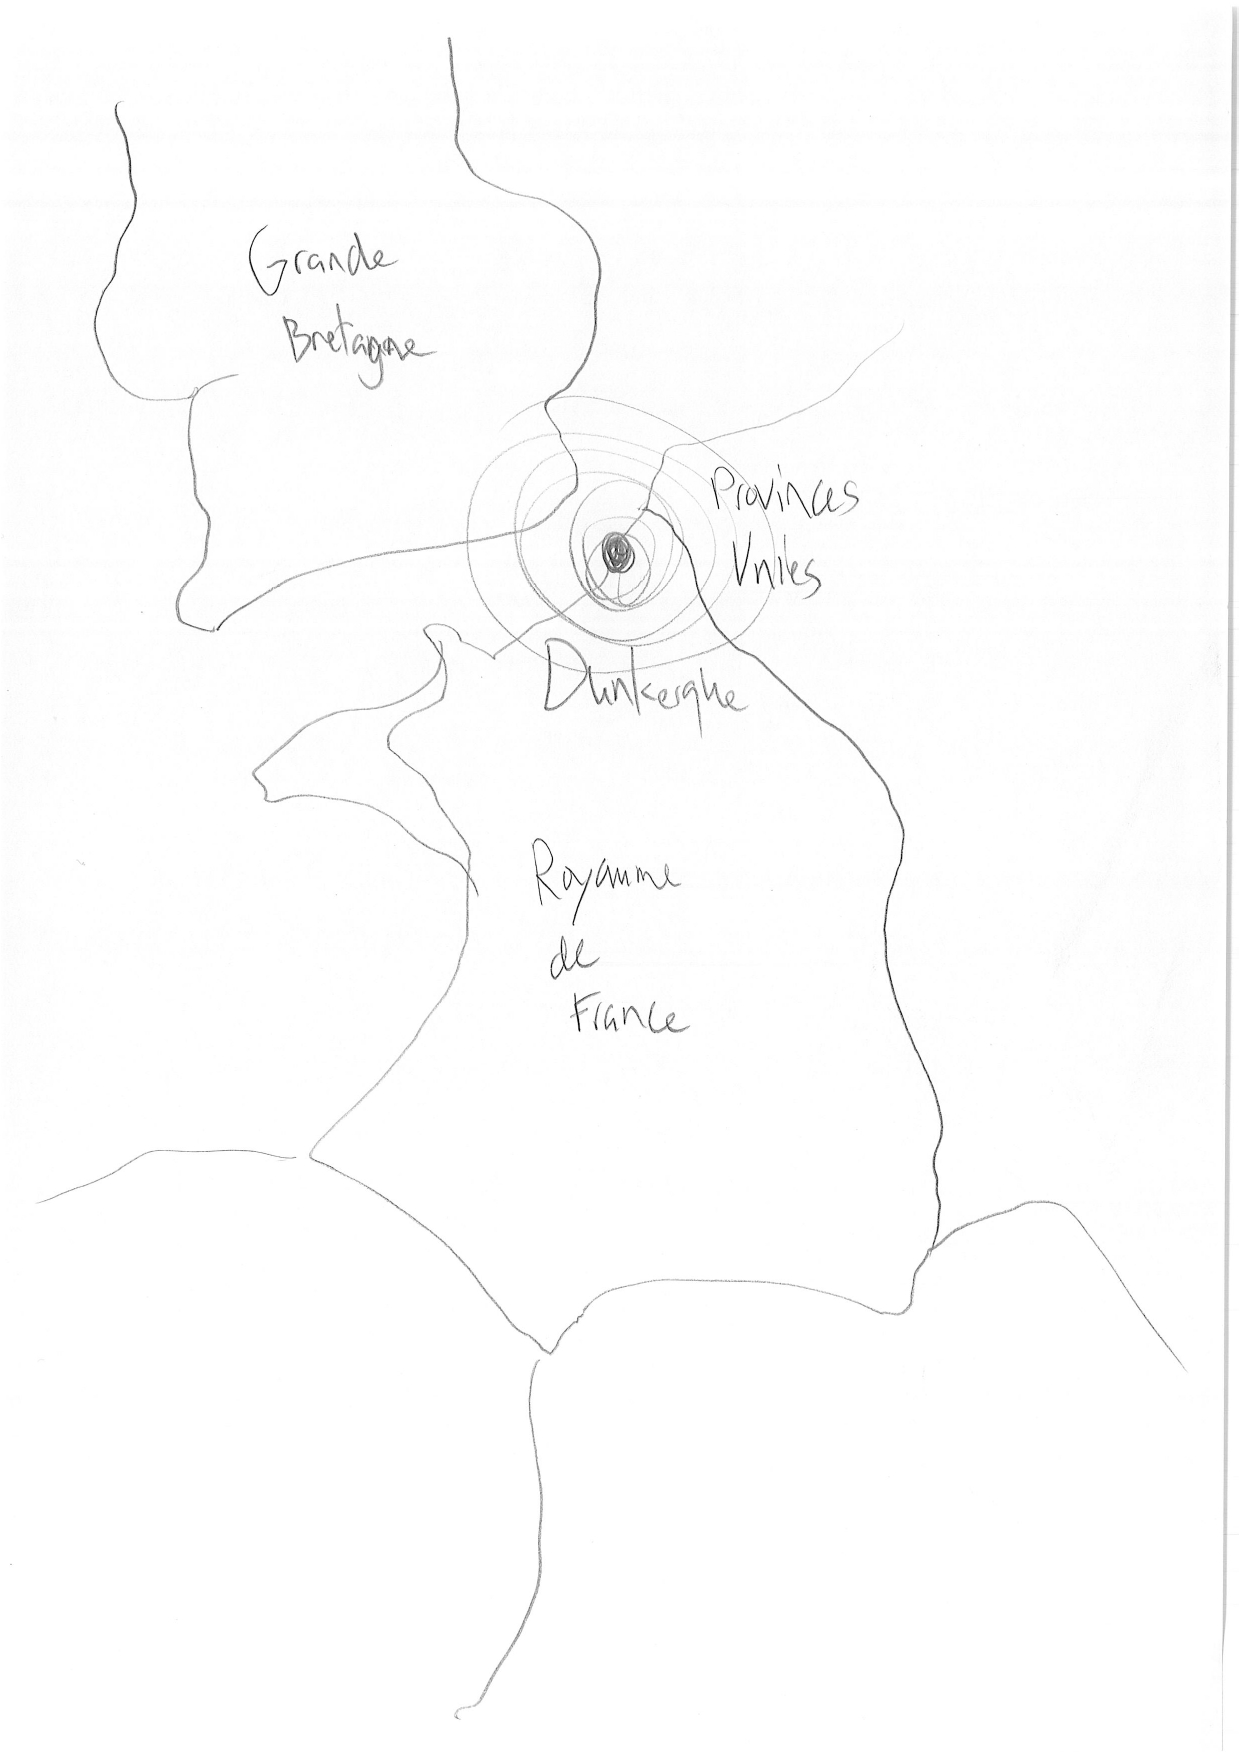 Grande
Bretagne
Provinces
Unies
Dunkerque
Royaume
de
France